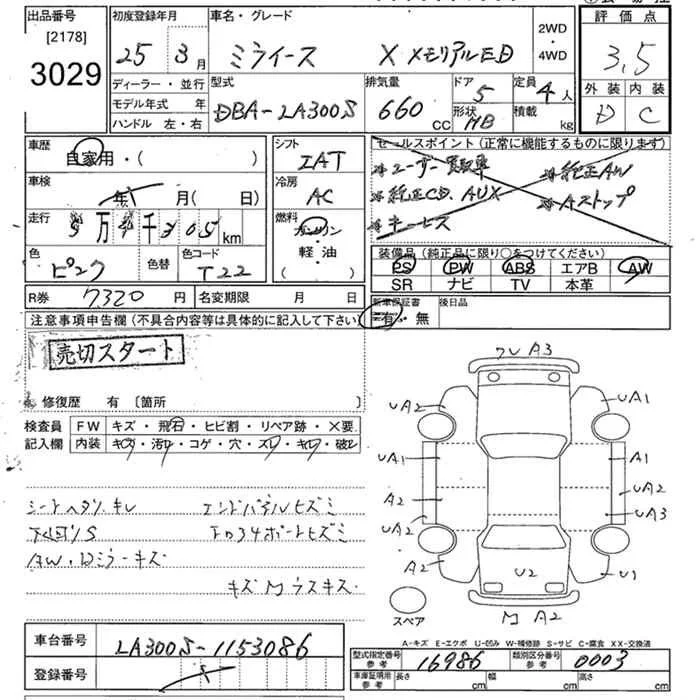 出品番号 初度登録年月 車名・グレード 2WD・4WD 評価点
[2178]
3029 25年 3月 ミライース X メモリアルED 3.5
ディーラー・並行 型式 排気量 ドア 定員 外装 内装
モデル年式 年 DBA-LA300S 660cc 5 4人 D C
ハンドル 左・右 形状 HB 積載 kg
車歴 シフト セールスポイント(正常に機能するものに限ります)
自家用・( ) IAT ユーザー買取車 純正AW
車検 冷房 純正CD. AUX Aストップ
年 月( 日) AC キーレス
走行 燃料
5万 千305km ガソリン
色 色替 色コード 軽・油 装備品(純正品に限り○をつけてください)
ピンク T22 ( ) PS PW ABS エアB AW
SR ナビ TV 本革
R券 7320円 名変期限 月 日 新車保証書 後日品
注意事項申告欄(不具合内容等は具体的に記入して下さい) 有・無
売切スタート
修復歴 有〔箇所 〕
検査員 FW キズ・飛石・ヒビ割・リペア跡・X要
記入欄 内装 キズ・汚れ・コゲ・穴・スレ・キレ・破れ
エンドパネルヒズミ
下回りS
AW・Dミラーキズ
A3
UA2 UA1
UA1 A1
A2 UA2
UA2 UA3
A2 U1
U2
スペア
A2
A-キズ E-エクボ U-凹み W-補修跡 S-サビ C-腐食 XX-交換済
車台番号 LA300S-1153086
型式指定番号 参考 16986 類別区分番号 参考 0003
登録番号
車庫証明用 参考 長さ cm 幅 cm 高さ cm